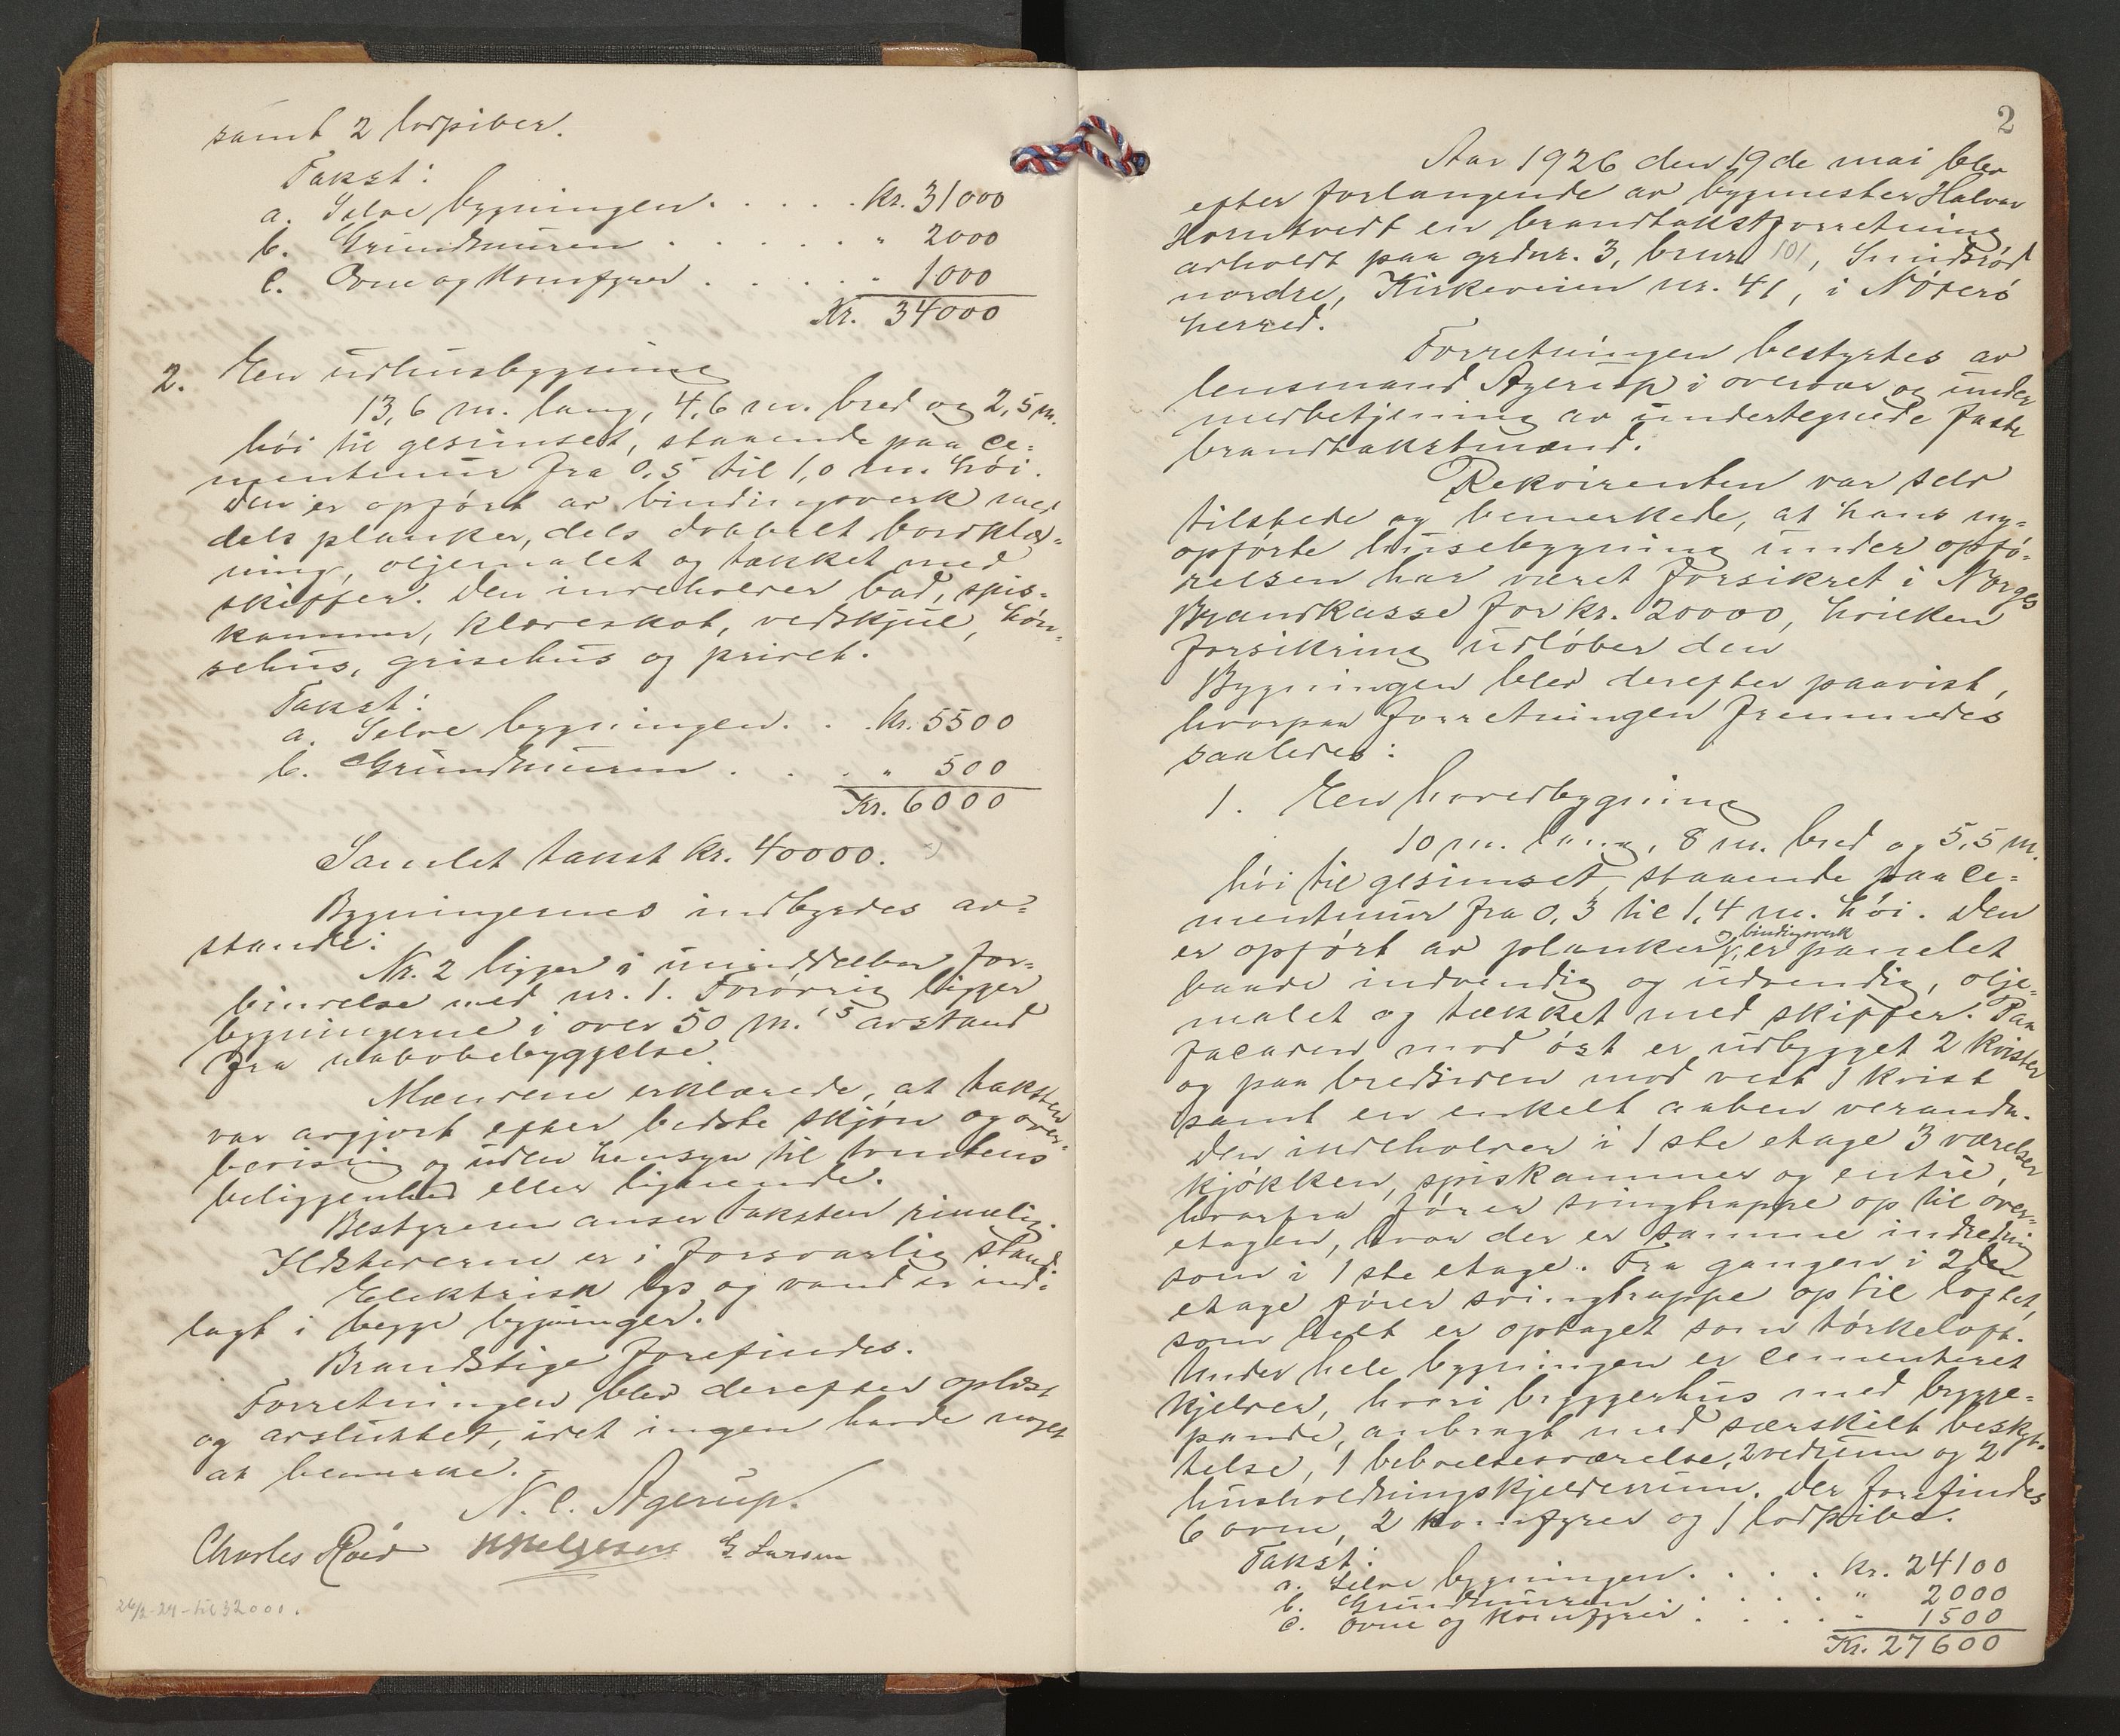 samt 2 lodpiber.
Takst:
a. Selve bygningen. . . . . Kr. 31000
b. Grundmuren . . . . . . " 2000
c. Ovne og Komfyrer . . . . " 1000
Kr. 34000
2. En udhusbygning
13,6 m. lang, 4,6 m. bred og 2,5 m.
høi til gesimset, staaende paa ce-
mentmur fra 0,5 til 1,0 m. høi.
Den er opført av bindingsverk med
dels planker, dels dobbelt bordklæd-
ning, oljemalet og tækket med
skiffer. Den indeholder bad, spis-
kammer, klædeskot, vedskjul, høn-
sehus, grisehus og privet.
Takst:
a. Selve bygningen. . . Kr. 5500
b. Grundmuren . . . " 500
Kr. 6000
Samlet takst Kr. 40000.
Bygningernes indbyrdes av-
stande:
Nr. 2 ligger i umiddelbar for-
bindelse med nr. 1. Forøvrig ligger
bygningerne i over 50 m.'s avstand
fra nabobebyggelse.
Mændene erklærede, at taksten
var avgjort efter bedste skjøn og over-
bevisning og uden hensyn til tomtens
beliggenhed eller lignende.
Bestyreren anser taksten rimelig.
Ildstederne er i forsvarlig stand.
Elektrisk lys og vand er ind-
lagt i begge bygninger.
Brandstige forefindes.
Forretningen blev derefter oplæst
og avsluttet, idet ingen havde noget
at bemerke.
N. C. Agerup.
Charles Røed HHelgesen G Larsen
26/2-29-til 32000.
2
Aar 1926 den 19de mai blev
efter forlangende av bygmester Halvor
Horntvedt en brandtakstforretning
avholdt paa grdnr. 3, brnr 101, Smidsrød
nordre, Kirkeveien nr. 41, i Nøterø
herred.
Forretningen bestyrtes av
lensmand Agerup i overvær og under
medbetjening av undertegnede faste
brandtakstmænd.
Rekvirenten var selv
tilstede og bemerkede, at hans ny-
opførte husebygning under opfø-
relsen har været forsikret i Norges
Brandkasse for kr. 20000, hvilken
forsikring udløber den
Bygningen blev derefter paavist,
hvorpaa forretningen fremmedes
saaledes:
1. En hovedbygning
10 m. lang, 8 m. bred og 5,5 m.
høi til gesimset, staaende paa ce-
mentmur fra 0,3 til 1,4 m. høi. Den
og bindingsverk
er opført av planker, er panelet
baade indvendig og udvendig, olje-
malet og tækket med skiffer. Paa
facaden mod øst er udbygget 2 kvister
og paa bredsiden mod vest 1 kvist
samt en enkelt aaben veranda.
Den indeholder i 1ste etage 3 værelser
kjøkken, spiskammer og entré,
hvorfra fører svingtrappe op til over-
etagen, hvor der er samme indredning
som i 1ste etage. Fra gangen i 2den
etage fører svingtrappe op til loftet,
som helt er optaget som tørkeloft.
Under hele bygningen er cementeret
kjelder, hvori bryggerhus med brygge-
pande, anbragt med særskilt beskyt-
telse, 1 beboelsesværelse, 2 vedrum og 2
husholdningskjelderrum. Der forefindes
6 ovne, 2 komfyrer og 1 lodpibe.
Takst:
a. Selve bygningen. . . . Kr. 24100
b. Grundmuren . . . . . " 2000
c. Ovne og Komfyrer . . . . " 1500
Kr. 27600